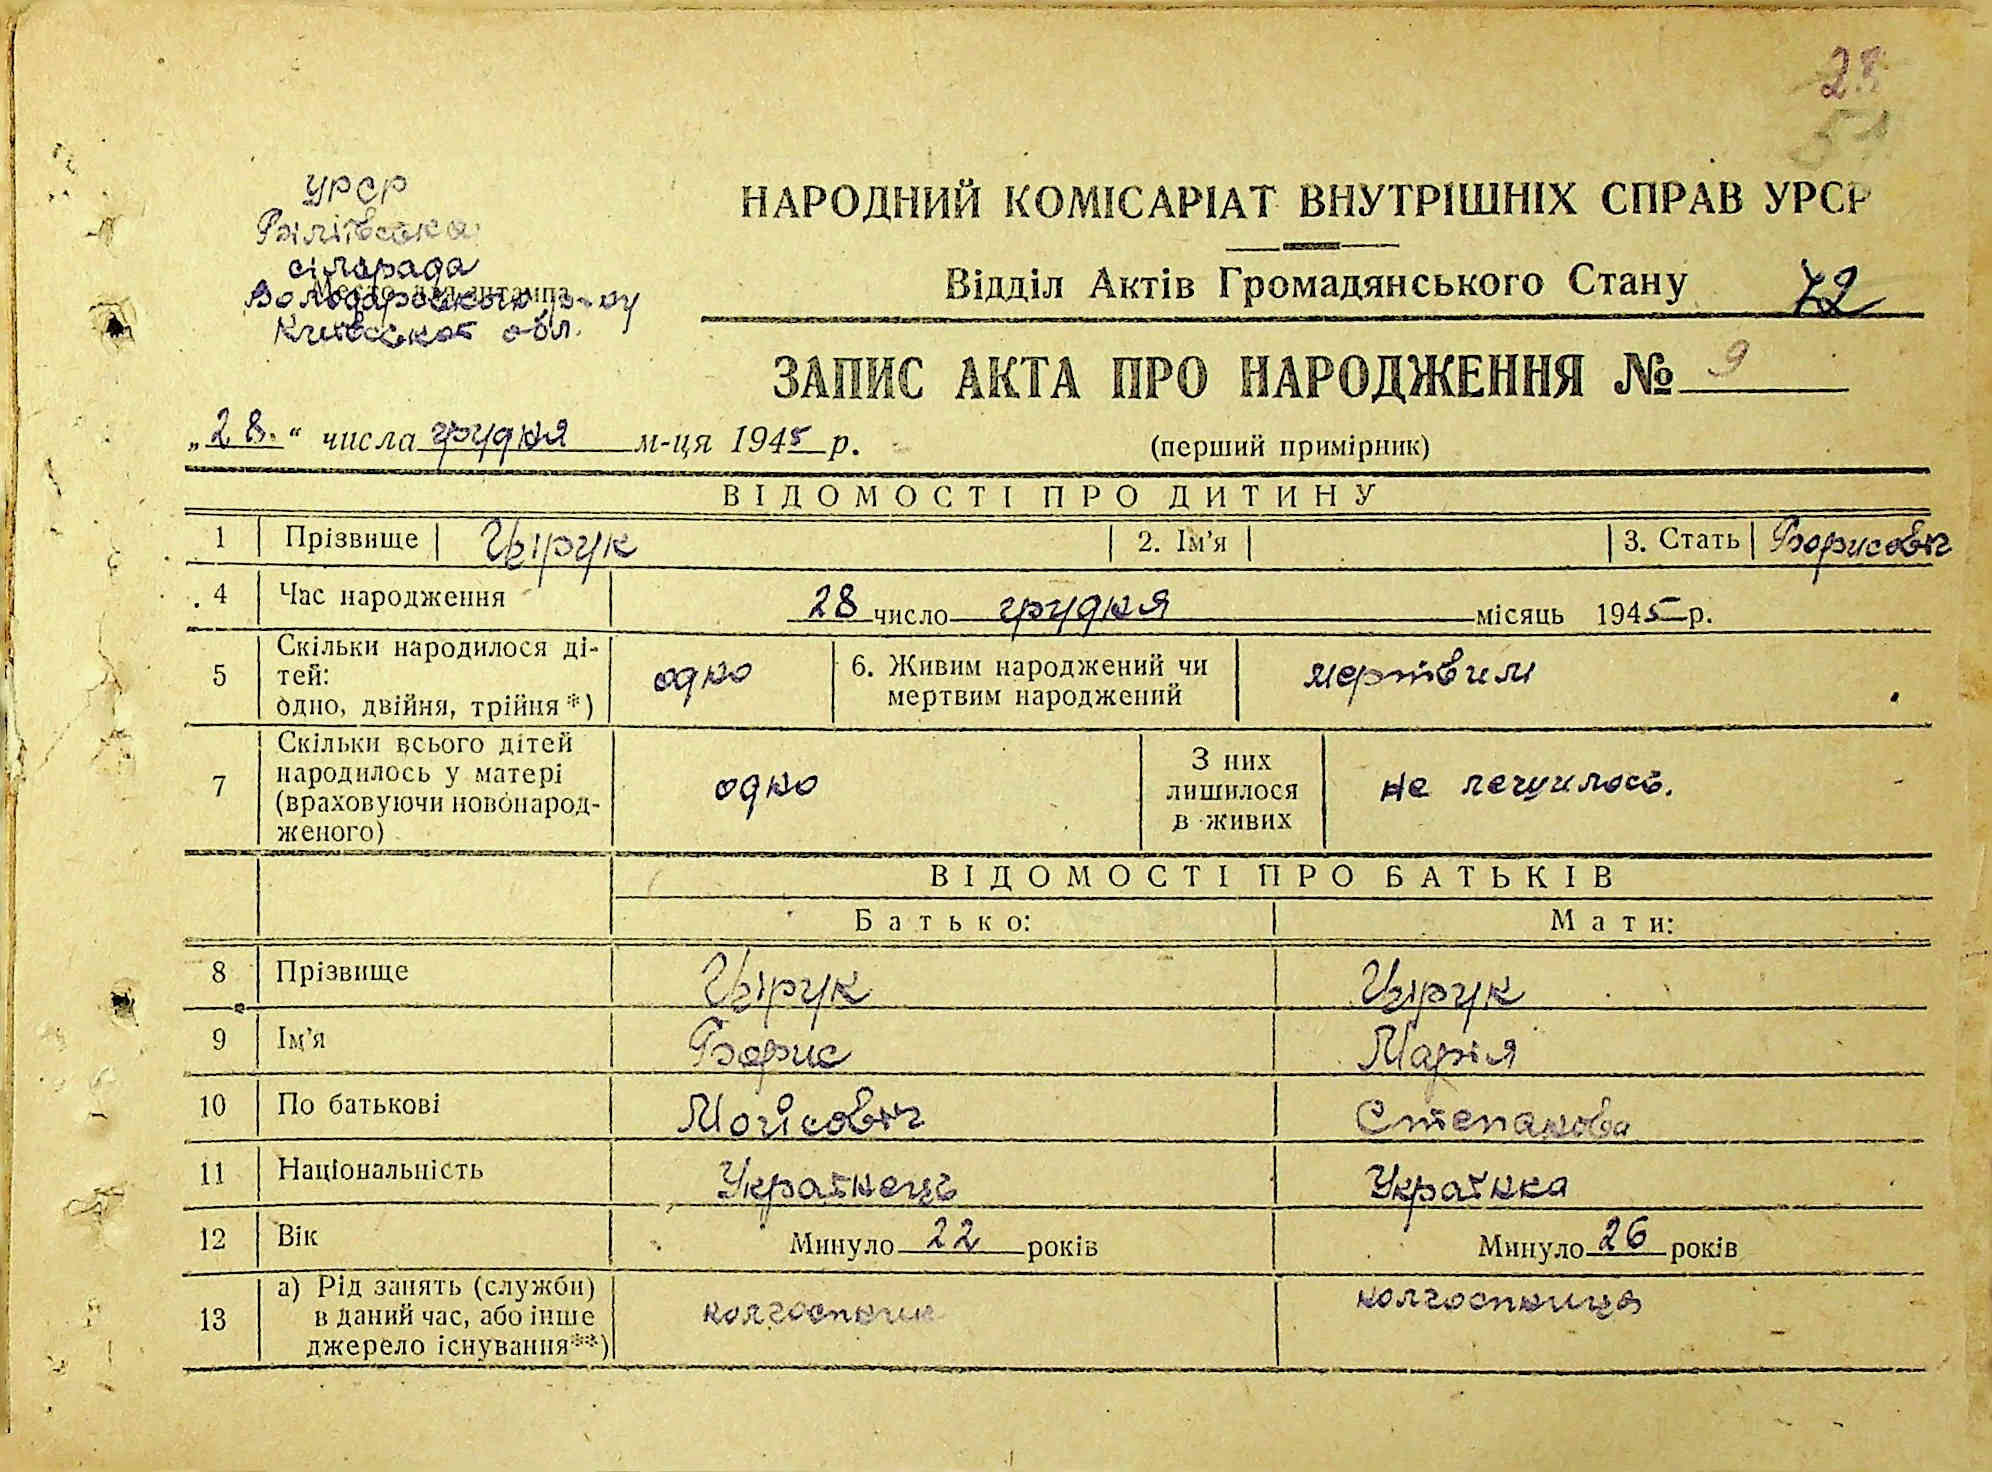 28
51
УРСР
НАРОДНИЙ КОМІСАРІАТ ВНУТРІШНІХ СПРАВ УРСР
сільрада
Відділ Актів Громадянського Стану 72
Место для штампа
Володарського р-ну
Київської обл.
ЗАПИС АКТА ПРО НАРОДЖЕННЯ № 9
„28.“ числа грудня м-ця 1945 р.
(перший примірник)
ВІДОМОСТІ ПРО ДИТИНУ
1 Прізвище Цырук 2. Ім’я 3. Стать Борисович
4 Час народження 28 число грудня місяць 1945 р.
5 Скільки народилося ді-
тей:
одно, двійня, трійня*) одно 6. Живим народжений чи
мертвим народжений мертвим
7 Скільки всього дітей
народилось у матері
(враховуючи новонарод-
женого) одно З них
лишилося
в живих не
ВІДОМОСТІ ПРО БАТЬКІВ
Батько: Мати:
8 Прізвище Цырук Цырук
9 Ім’я Борис Марія
10 По батькові Мойсович Степанова
11 Національність Українець Українка
12 Вік Минуло 22 років Минуло 26 років
13 а) Рід занять (служби)
в даний час, або інше
джерело існування**) колгоспник колгоспниця